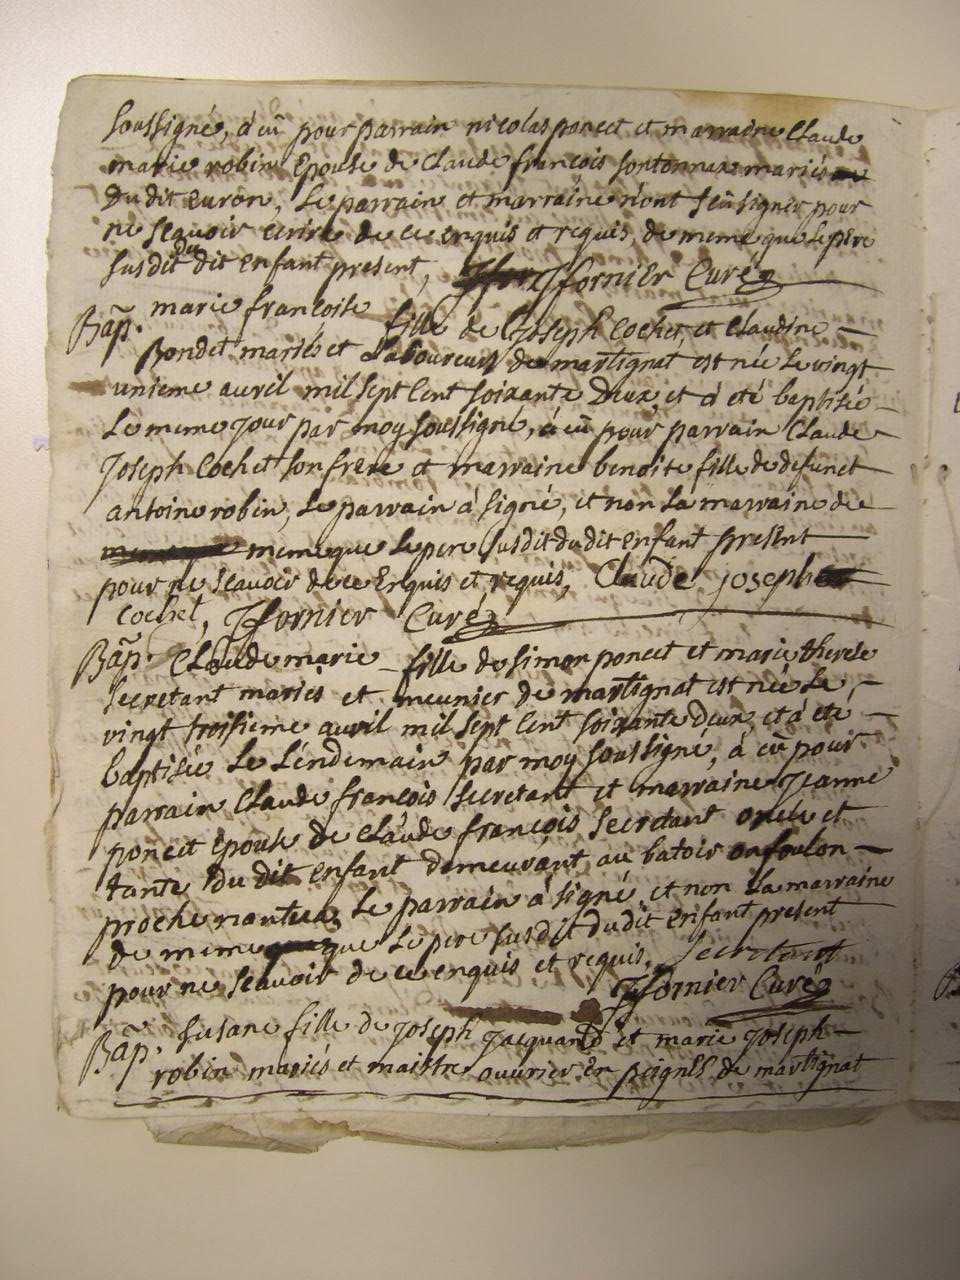 soussigné, à eû pour parrain nicolas poncet et marraine Claude
marie robin Epouse de Claude françois sontonnax mariés
du dit Evron, Le parrain et marraine n'ont sçû signer pour
ne sçavoir ecrire de ce enquis et requis, de meme que le pere
susdit du dit Enfant present, Jfornier Curé
Bap. marie francoise fille de Joseph Cochet, et Claudine
pondet mariés et Laboureurs de martignat est née Le vingt
unieme avril mil sept Cent soixante Deux, et à eté baptisée
Le meme jour par moy soussigné, à eû pour parrain Claude
Joseph Cochet son frère et marraine benoite fille de defunct
antoine robin, Le parrain à signé, et non La marraine de
meme que Le pere susdit du dit Enfant present
pour ne sçavoir de ce Enquis et requis, Claude joseph
Cochet, Jfornier Curé
Bap. Claude marie fille de simon poncet et marie therese
secretant mariés et meunier de martignat est née Le
vingt troisieme avril mil sept Cent soixante deux et à eté
baptisée Le Lendemain par moy soussigné, à eû pour
parrain Claude françois secretant et marraine Jeanne
poncet Epouse de Claude françois secretant oncle et
tante du dit Enfant demeurant au batoir ou foulon
proche nantua, Le parrain à signé et non La marraine
de meme que Le pere susdit du dit Enfant present
pour ne sçavoir de ce enquis et requis, secretant
Jfornier Curé
Bap. susane fille de Joseph Jacquand et marie Joseph
robin mariés et maistre ouvrier En peignes de martignat